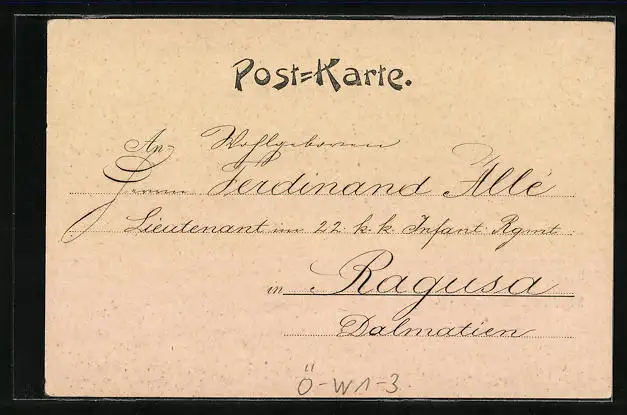 Post=Karte.
An Wohlgeboren
Herrn Ferdinand Allé
Lieutenant im 22 k. k. Infant: Rgmt
in Ragusa
Dalmatien
Ö-W1-3